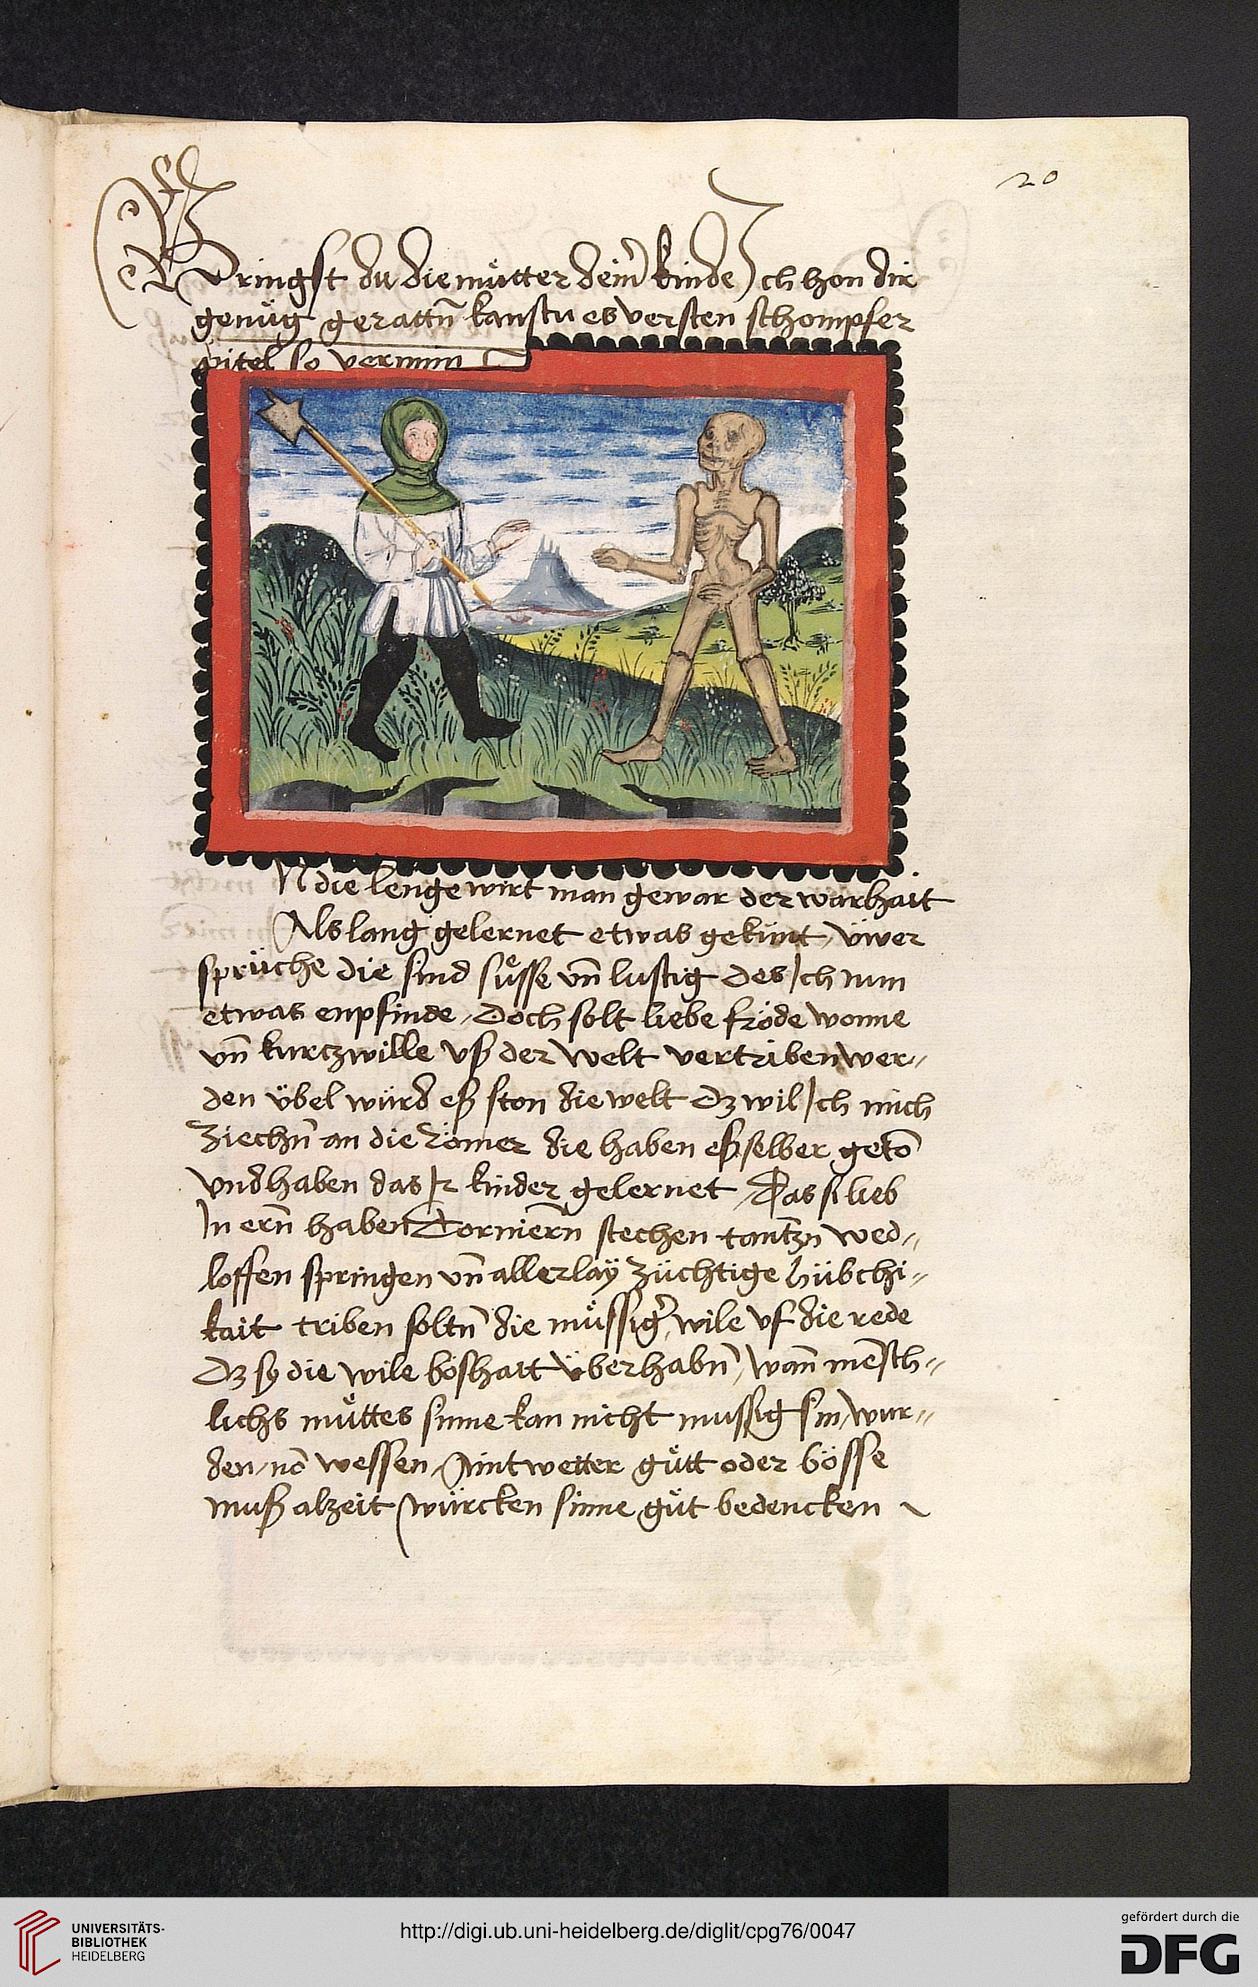 20
Bringst du die můtter deim̄ kinde Ich hon dir
genůg gerattn̄ kanstu es versten schompfer
pitel so vernim
In die lenge wirt man gewar der warhait
Als lang gelernet etwas gekünt, üwer
sprüche die sind sůsse vn̄ lustig Des Ich nun
etwas enpfinde, Doch solt liebe fröde wonne
vn̄ kurczwille vß der welt vertriben wer,,
den übel würd eß ston die welt Dz wil Ich mich
Ziechn̄ an die Römer die haben eß selber getō
Vnd haben das Ir kinder gelernet, Das si lieb
In ern̄ haben Torniern̄ stechen tantzn̄ wed,,
loffen springen vn̄ allerlaÿ züchtige hübchi,,
kait triben soltn̄ die můssigr̄ wile vf die rede
Dz sy die wile boshait überhabn̄, wan̄ mēsch,,
lichs můttes sinne kan nicht mussig sin, wur,,
den, nō wessen, Aintwetter gůtt oder bösse
muß alzeit würcken sinne gůt bedencken
UNIVERSITÄTS-
BIBLIOTHEK
HEIDELBERG
http://digi.ub.uni-heidelberg.de/diglit/cpg76/0047
gefördert durch die
DFG